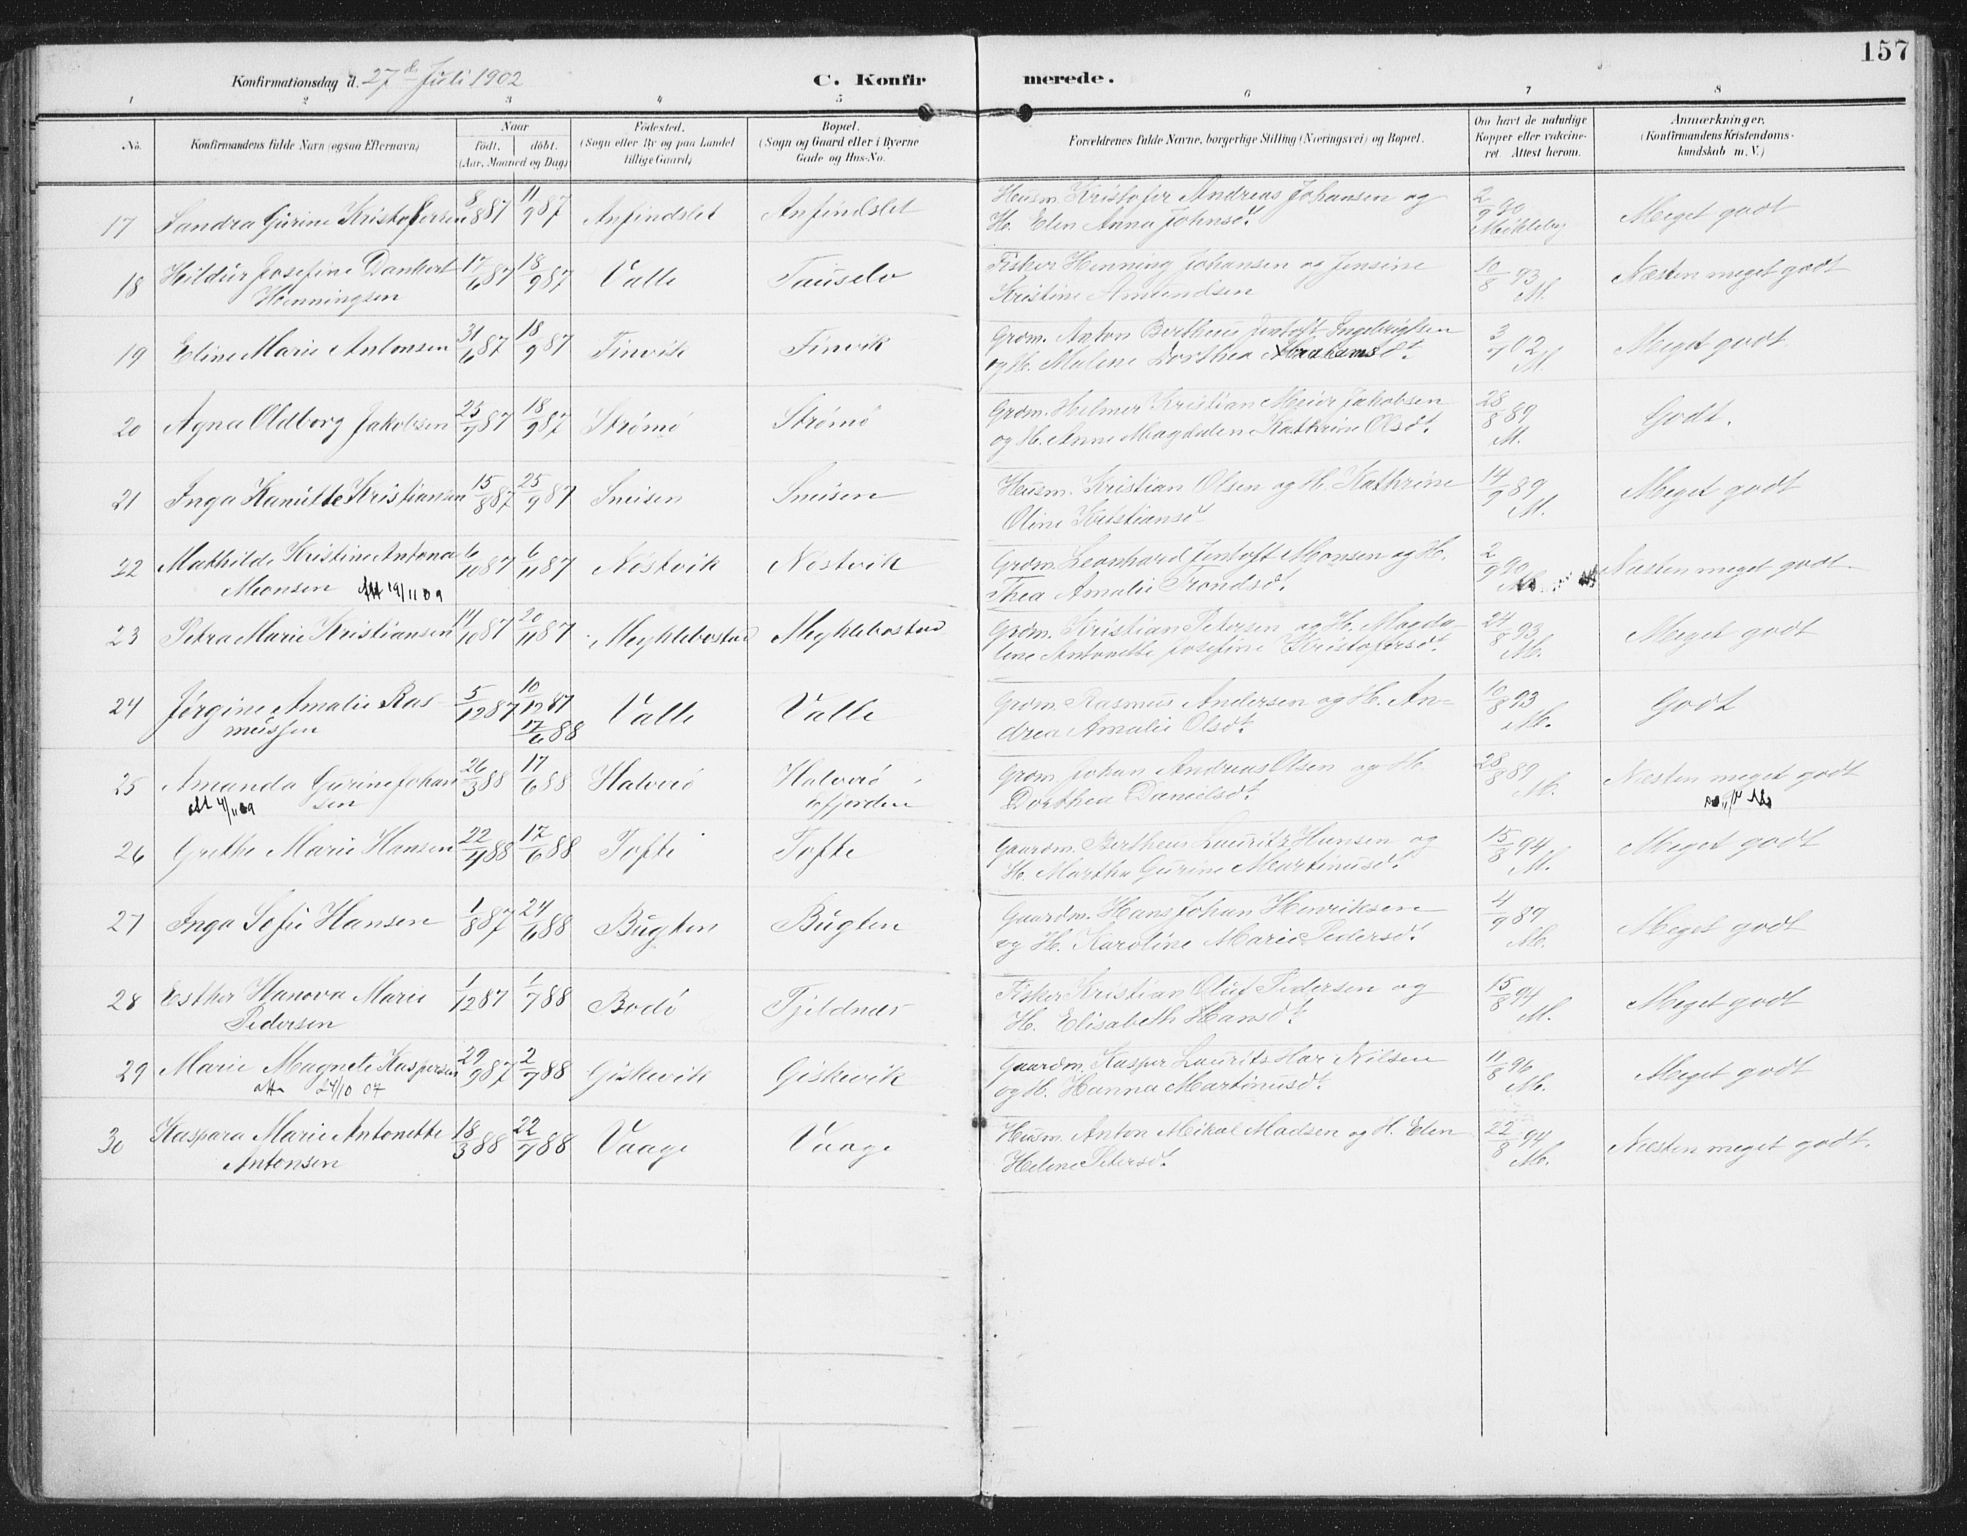 157
Konfirmationsdag d. 27de Juli 1902
C. Konfirmerede.
1 2 3 4 5 6 7 8
No.
Konfirmandens fulde Navn (ogsaa Efternavn)
Naar
født. døbt.
(Aar, Maaned og Dag)
Fødested.
(Sogn eller By og paa Landet tillige Gaard)
Bopæl.
(Sogn og Gaard eller i Byerne Gade og Hus-No.
Forældrenes fulde Navne, borgerlige Stilling (Næringsvei) og Bopæl.
Om havt de naturlige Kopper eller vaccineret. Attest herom.
Anmærkninger.
(Konfirmandens Kristendomskundskab m. V.)
17 Sandra Gurine Kristofersen 8/8 87 11/9 87 Anfindslet Anfindslet Husm. Kristofer Andreas Johansen og 2/9 90 Meget godt
H. Elen Anna Johnsdt.
18 Hildur Josefine Dankert 17/6 87 18/9 87 Valle Tauselv Fisker Henning Johansen og Jensine 10/8 93 Næsten meget godt
Henningsen Kristine Amundsen M.
19 Eline Marie Antonsen 31/6 87 18/9 87 Finvik Finvik Grdm. Anton Bertheus Jentoft Ingebrigtsen 3/7 02 Meget godt
og H. Malene Dorthea Abrahamsdt. M.
20 Agna Oldborg Jakobsen 25/7 87 18/9 87 Strømø Strømø Grdm. Helmer Kristian Meier Jakobsen 28/8 89 Godt.
og H. Anne Magdalen Kathrine Olsdt. M.
21 Inga Hanütte Kristiansen 15/8 87 25/9 87 Sneisen Sneisen Husm. Kristian Olsen og H. Kathrine 14/9 89 Meget godt
Oline Kristiansdt M.
22 Mathilde Kristine Antona 6/10 87 6/11 87 Nøstvik Nøstvik Grdm. Leonhard Jentoft Monsen og H. 2/9 90 Næsten meget godt.
Monsen Att 19/11 09 Thea Amalie Trondsdt.
23 Petra Marie Kristiansen 14/10 87 20/11 87 Meyklebostad Meyklebostad Grdm. Kristian Petersen og H. Magda- 24/8 93 Meget godt
lene Antonette Josefine Kristofersdt. M.
24 Jørgine Amalie Ras- 5/12 87 10/12 87 Valle Valle Grdm. Rasmus Andersen og H. An- 10/8 93 Godt
mussen 17/6 88 drea Amalie Olsdt. M.
25 Amanda Gurine Johan 26/3 88 17/6 88 Halvøiø Halvøiø Grdm. Johan Andreas Olsen og H. 28/8 89 Næsten meget godt
sen Øfjorden Dorthea Danielsdt. M.
26 Grethe Marie Hansen 22/4 88 17/6 88 Tofte Tofte Gaardm. Bertheus Lauritz Hansen og 15/8 94 Meget godt
H. Martha Gurine Martinusdt. M.
27 Inga Sofie Hansen 1/8 87 24/6 88 Bugten Bugten Gaardm. Hans Johan Henriksen 4/9 89 Meget godt
og H. Karoline Marie Pedersdt. M.
28 Esther Hanova Marie 1/12 87 1/7 88 Bodø Tjildnæs Fisker Kristian Oluf Pedersen og 15/8 94 Meget godt
Pedersen H. Elisabeth Hansdt. M.
29 Marie Magnete Kaspersen 29/9 87 2/7 88 Giskevik Giskevik Gaardm. Kasper Laurits Har Nilsen 11/8 96 Meget godt
att 24/10 07 og H. Hanna Martinusdt. M.
30 Kaspara Marie Antonette 18/3 88 22/7 88 Vaage Vaage Husm. Anton Mikal Madsen og H. Elen 22/8 94 Næsten meget godt.
Antonsen Helene Petersdt. M.